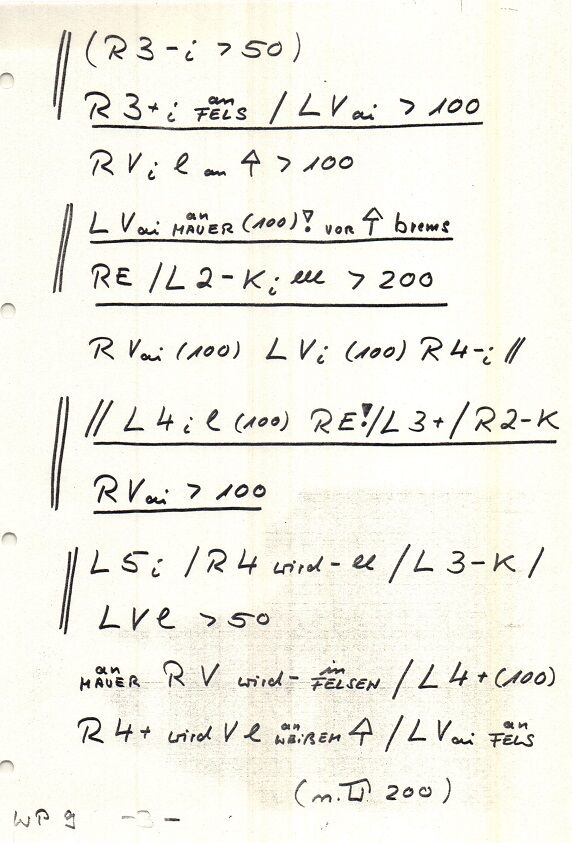 (R3-i > 50)
R3+i an FELS / LVai > 100
RVi l an ⇧ > 100
LVai an MAUER (100)! vor ⇧ brems
RE / L2-Ki lll > 200
RVai (100) LVi (100) R4-i //
// L4i l (100) RE! / L3+ / R2-K
RVai > 100
L5i / R4 wird- ll / L3-K /
LVl > 50
an MAUER RV wird- in FELSEN / L4+ (100)
R4+ wird Vl an WEIßEM ⇧ / LVai an FELS
(n. 200)
WP 9 -3-